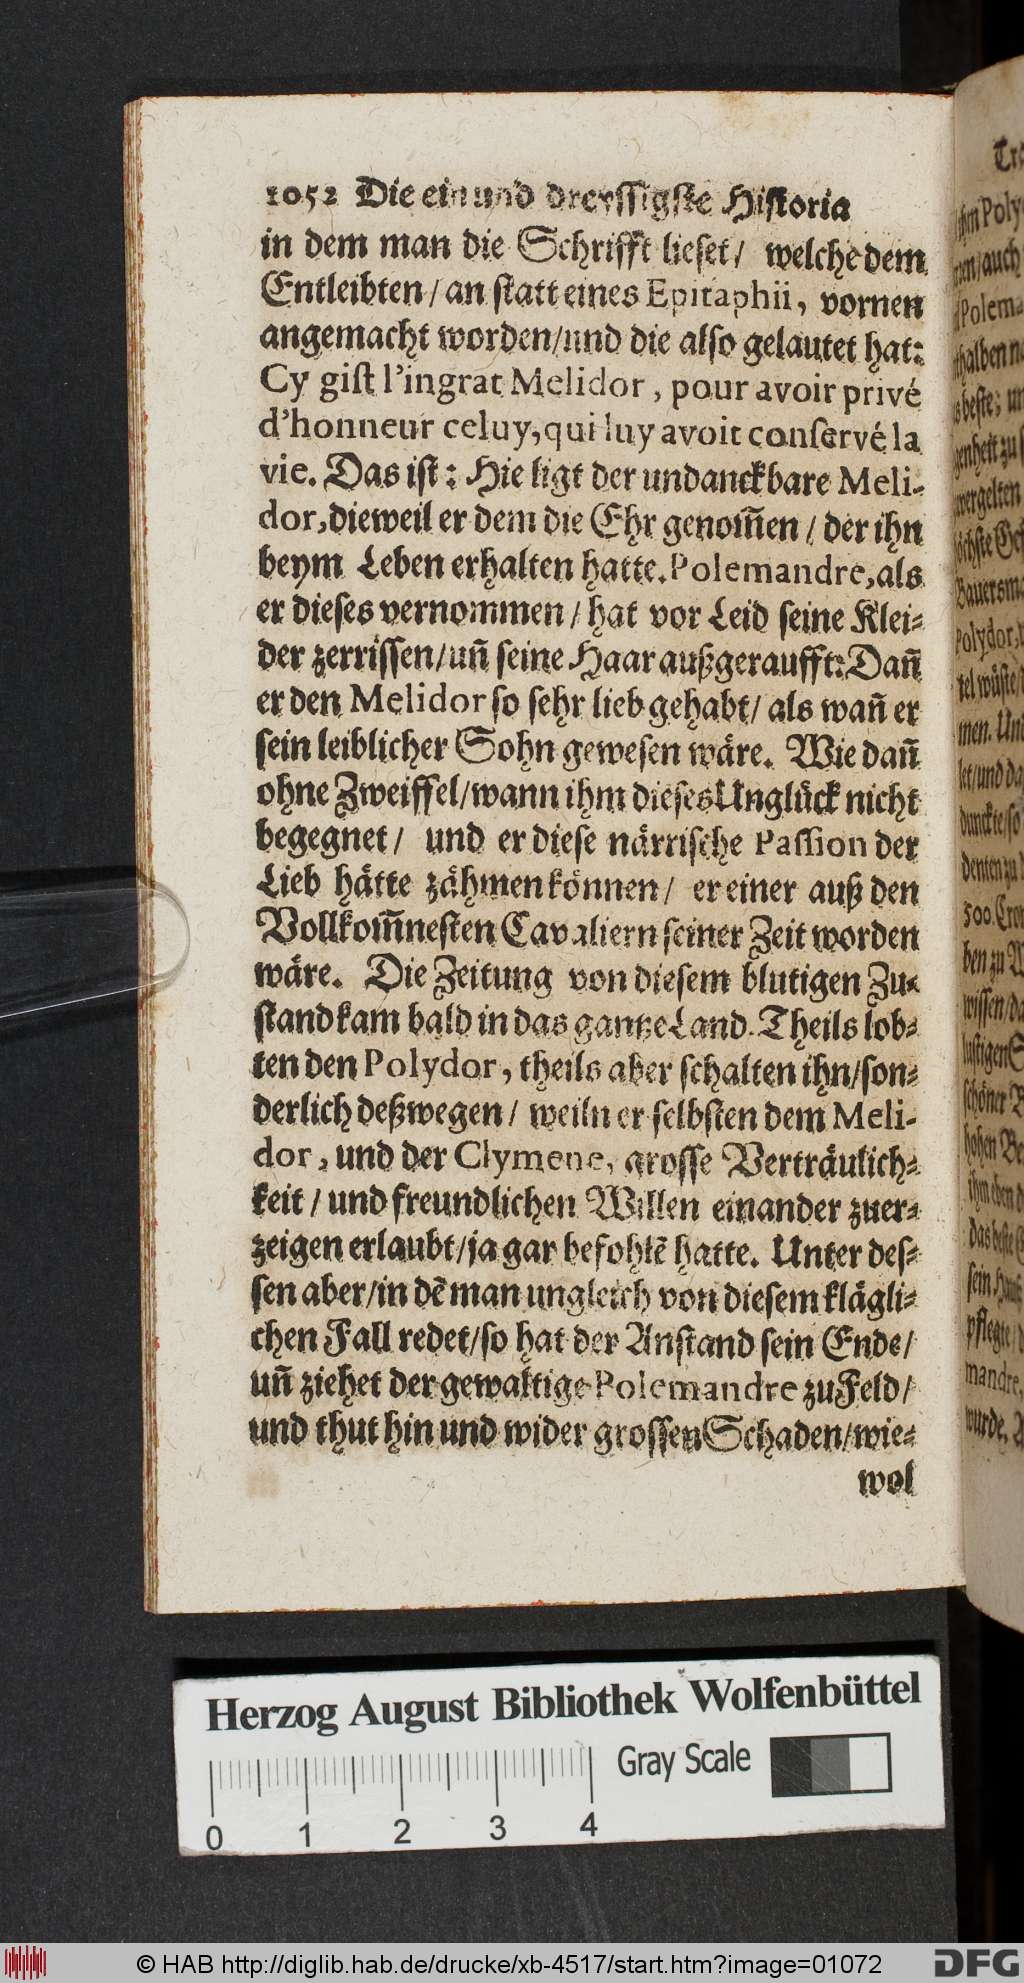 1052 Die ein und dreyssigste Historia
in dem man die Schrifft lieset/ welche dem
Entleibten/an statt eines Epitaphii, vornen
angemacht worden/und die also gelautet hat:
Cy gist l'ingrat Melidor, pour avoir privé
d'honneur celuy, qui luy avoit conservé la
vie. Das ist: Hie ligt der undanckbare Meli-
dor, dieweil er dem die Ehr genom̃en / der ihn
beym Leben erhalten hatte. Polemandre, als
er dieses vernommen / hat vor Leid seine Klei-
der zerrissen/uñ seine Haar außgeraufft: Dañ
er den Melidor so sehr lieb gehabt/ als wañ er
sein leiblicher Sohn gewesen wäre. Wie dañ
ohne Zweiffel/wann ihm dieses Unglück nicht
begegnet/ und er diese närrische Passion der
Lieb hätte zähmen können/ er einer auß den
Vollkom̃nesten Cavaliern seiner Zeit worden
wäre. Die Zeitung von diesem blutigen Zu-
stand kam bald in das gantze Land. Theils lob-
ten den Polydor, theils aber schalten ihn/son-
derlich deßwegen/ weiln er selbsten dem Meli-
dor, und der Clymene, grosse Verträulich-
keit / und freundlichen Willen einander zuer-
zeigen erlaubt/ja gar befohlẽ hatte. Unter des-
sen aber/in dẽ man ungleich von diesem klägli-
chen Fall redet/so hat der Anstand sein Ende/
uñ ziehet der gewaltige Polemandre zu Feld/
und thut hin und wider grossen Schaden/wie-
wol
Herzog August Bibliothek Wolfenbüttel
Gray Scale
0 1 2 3 4
© HAB http://diglib.hab.de/drucke/xb-4517/start.htm?image=01072
DFG